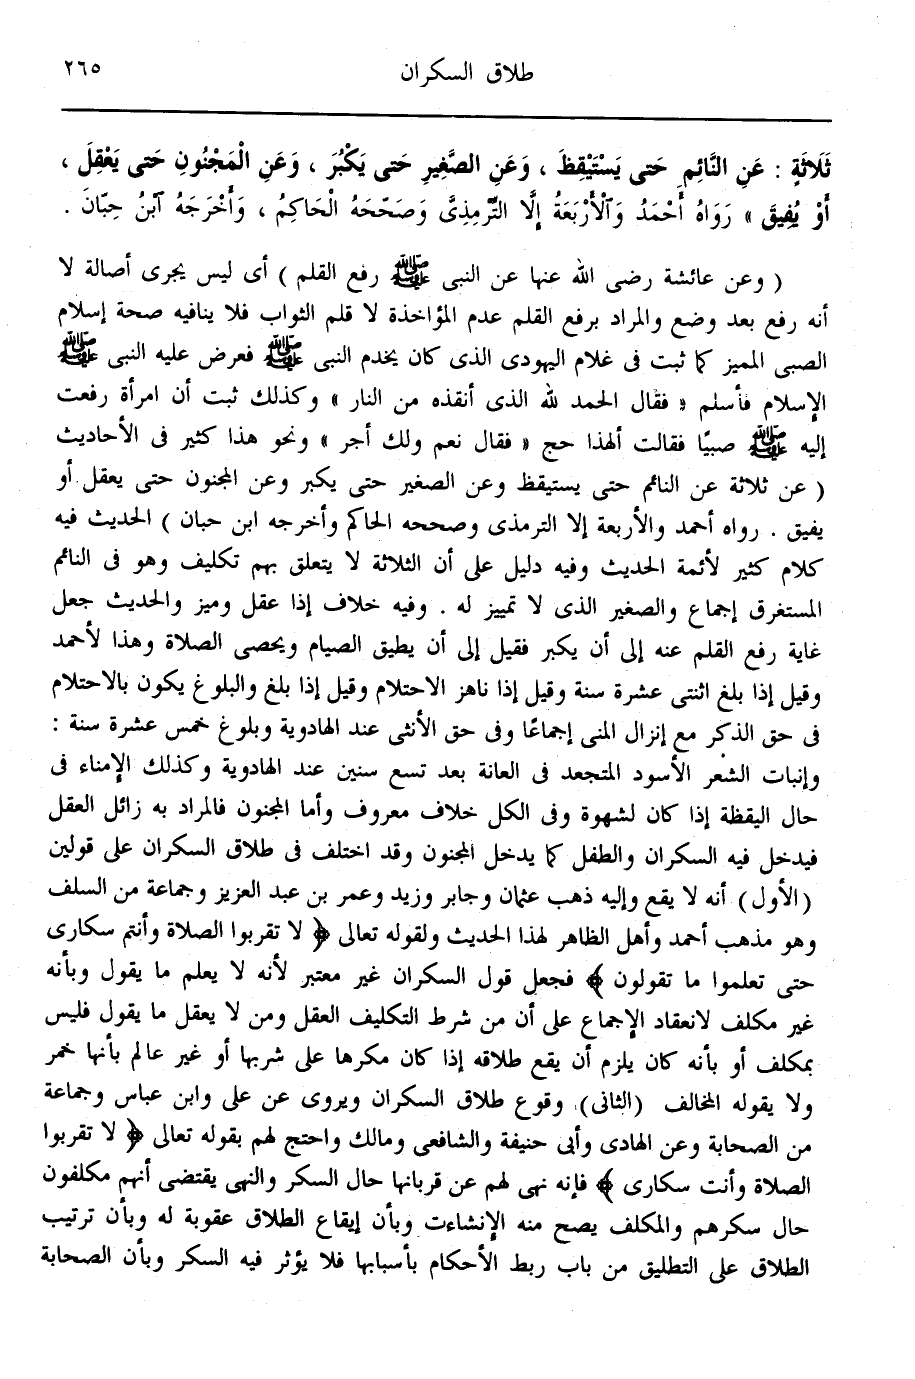 طلاق السكران
٢٦٥
ثَلَاثَةٍ : عَنِ النَّائِمِ حَتى يَسْتَيْقِظَ ، وَعَنِ الصَّغِيرِ حَتى يَكْبُرَ ، وَعَنِ الْمَجْنُونِ حَتى يَعْقِلَ ،
أَوْ يُفِيقَ » رَوَاهُ أَحْمَدُ وَٱلْأَرْبَعَةُ إلَّا التِّرمِذِىَّ وَصَحّحَهُ الْحَاكِمُ ، وَأَخْرَجَهُ ٱبْنُ حِبّانَ .
( وعن عائشة رضى الله عنها عن النبى ﷺ رفع القلم ) أى ليس يجرى أصالة لا
أنه رفع بعد وضع والمراد برفع القلم عدم المؤاخذة لا قلم الثواب فلا ينافيه صحة إسلام
الصبى المميز كما ثبت فى غلام اليهودى الذى كان يخدم النبى ﷺ فعرض عليه النبى ﷺ
الإسلام فأسلم « فقال الحمد لله الذى أنقذه من النار » وكذلك ثبت أن امرأة رفعت
إليه ﷺ صبيًا فقالت ألهذا حج « فقال نعم ولك أجر » ونحو هذا كثير فى الأحاديث
( عن ثلاثة عن النائم حتى يستيقظ وعن الصغير حتى يكبر وعن المجنون حتى يعقل أو
يفيق . رواه أحمد والأربعة إلا الترمذى وصححه الحاكم وأخرجه ابن حبان ) الحديث فيه
كلام كثير لأئمة الحديث وفيه دليل على أن الثلاثة لا يتعلق بهم تكليف وهو فى النائم
المستغرق إجماع والصغير الذى لا تمييز له . وفيه خلاف إذا عقل وميز والحديث جعل
غاية رفع القلم عنه إلى أن يكبر فقيل إلى أن يطيق الصيام ويحصى الصلاة وهذا لأحمد
وقيل إذا بلغ اثنتى عشرة سنة وقيل إذا ناهز الاحتلام وقيل إذا بلغ والبلوغ يكون بالاحتلام
فى حق الذكر مع إنزال المنى إجماعًا وفى حق الأنثى عند الهادوية وبلوغ خمس عشرة سنة :
وإنبات الشعر الأسود المتجعد فى العانة بعد تسع سنين عند الهادوية وكذلك الإمناء فى
حال اليقظة إذا كان لشهوة وفى الكل خلاف معروف وأما المجنون فالمراد به زائل العقل
فيدخل فيه السكران والطفل كما يدخل المجنون وقد اختلف فى طلاق السكران على قولين
(الأول) أنه لا يقع وإليه ذهب عثمان وجابر وزيد وعمر بن عبد العزيز وجماعة من السلف
وهو مذهب أحمد وأهل الظاهر لهذا الحديث ولقوله تعالى ﴿ لا تقربوا الصلاة وأنتم سكارى
حتى تعلموا ما تقولون ﴾ فجعل قول السكران غير معتبر لأنه لا يعلم ما يقول وبأنه
غير مكلف لانعقاد الإجماع على أن من شرط التكليف العقل ومن لا يعقل ما يقول فليس
بمكلف أو بأنه كان يلزم أن يقع طلاقه إذا كان مكرها على شربها أو غير عالم بأنها خمر
ولا يقوله المخالف (الثانى) وقوع طلاق السكران ويروى عن على وابن عباس وجماعة
من الصحابة وعن الهادى وأبى حنيفة والشافعى ومالك واحتج لهم بقوله تعالى ﴿ لا تقربوا
الصلاة وأنت سكارى ﴾ فإنه نهى لهم عن قربانها حال السكر والنهى يقتضى أنهم مكلفون
حال سكرهم والمكلف يصح منه الإنشاءت وبأن إيقاع الطلاق عقوبة له وبأن ترتيب
الطلاق على التطليق من باب ربط الأحكام بأسبابها فلا يؤثر فيه السكر وبأن الصحابة